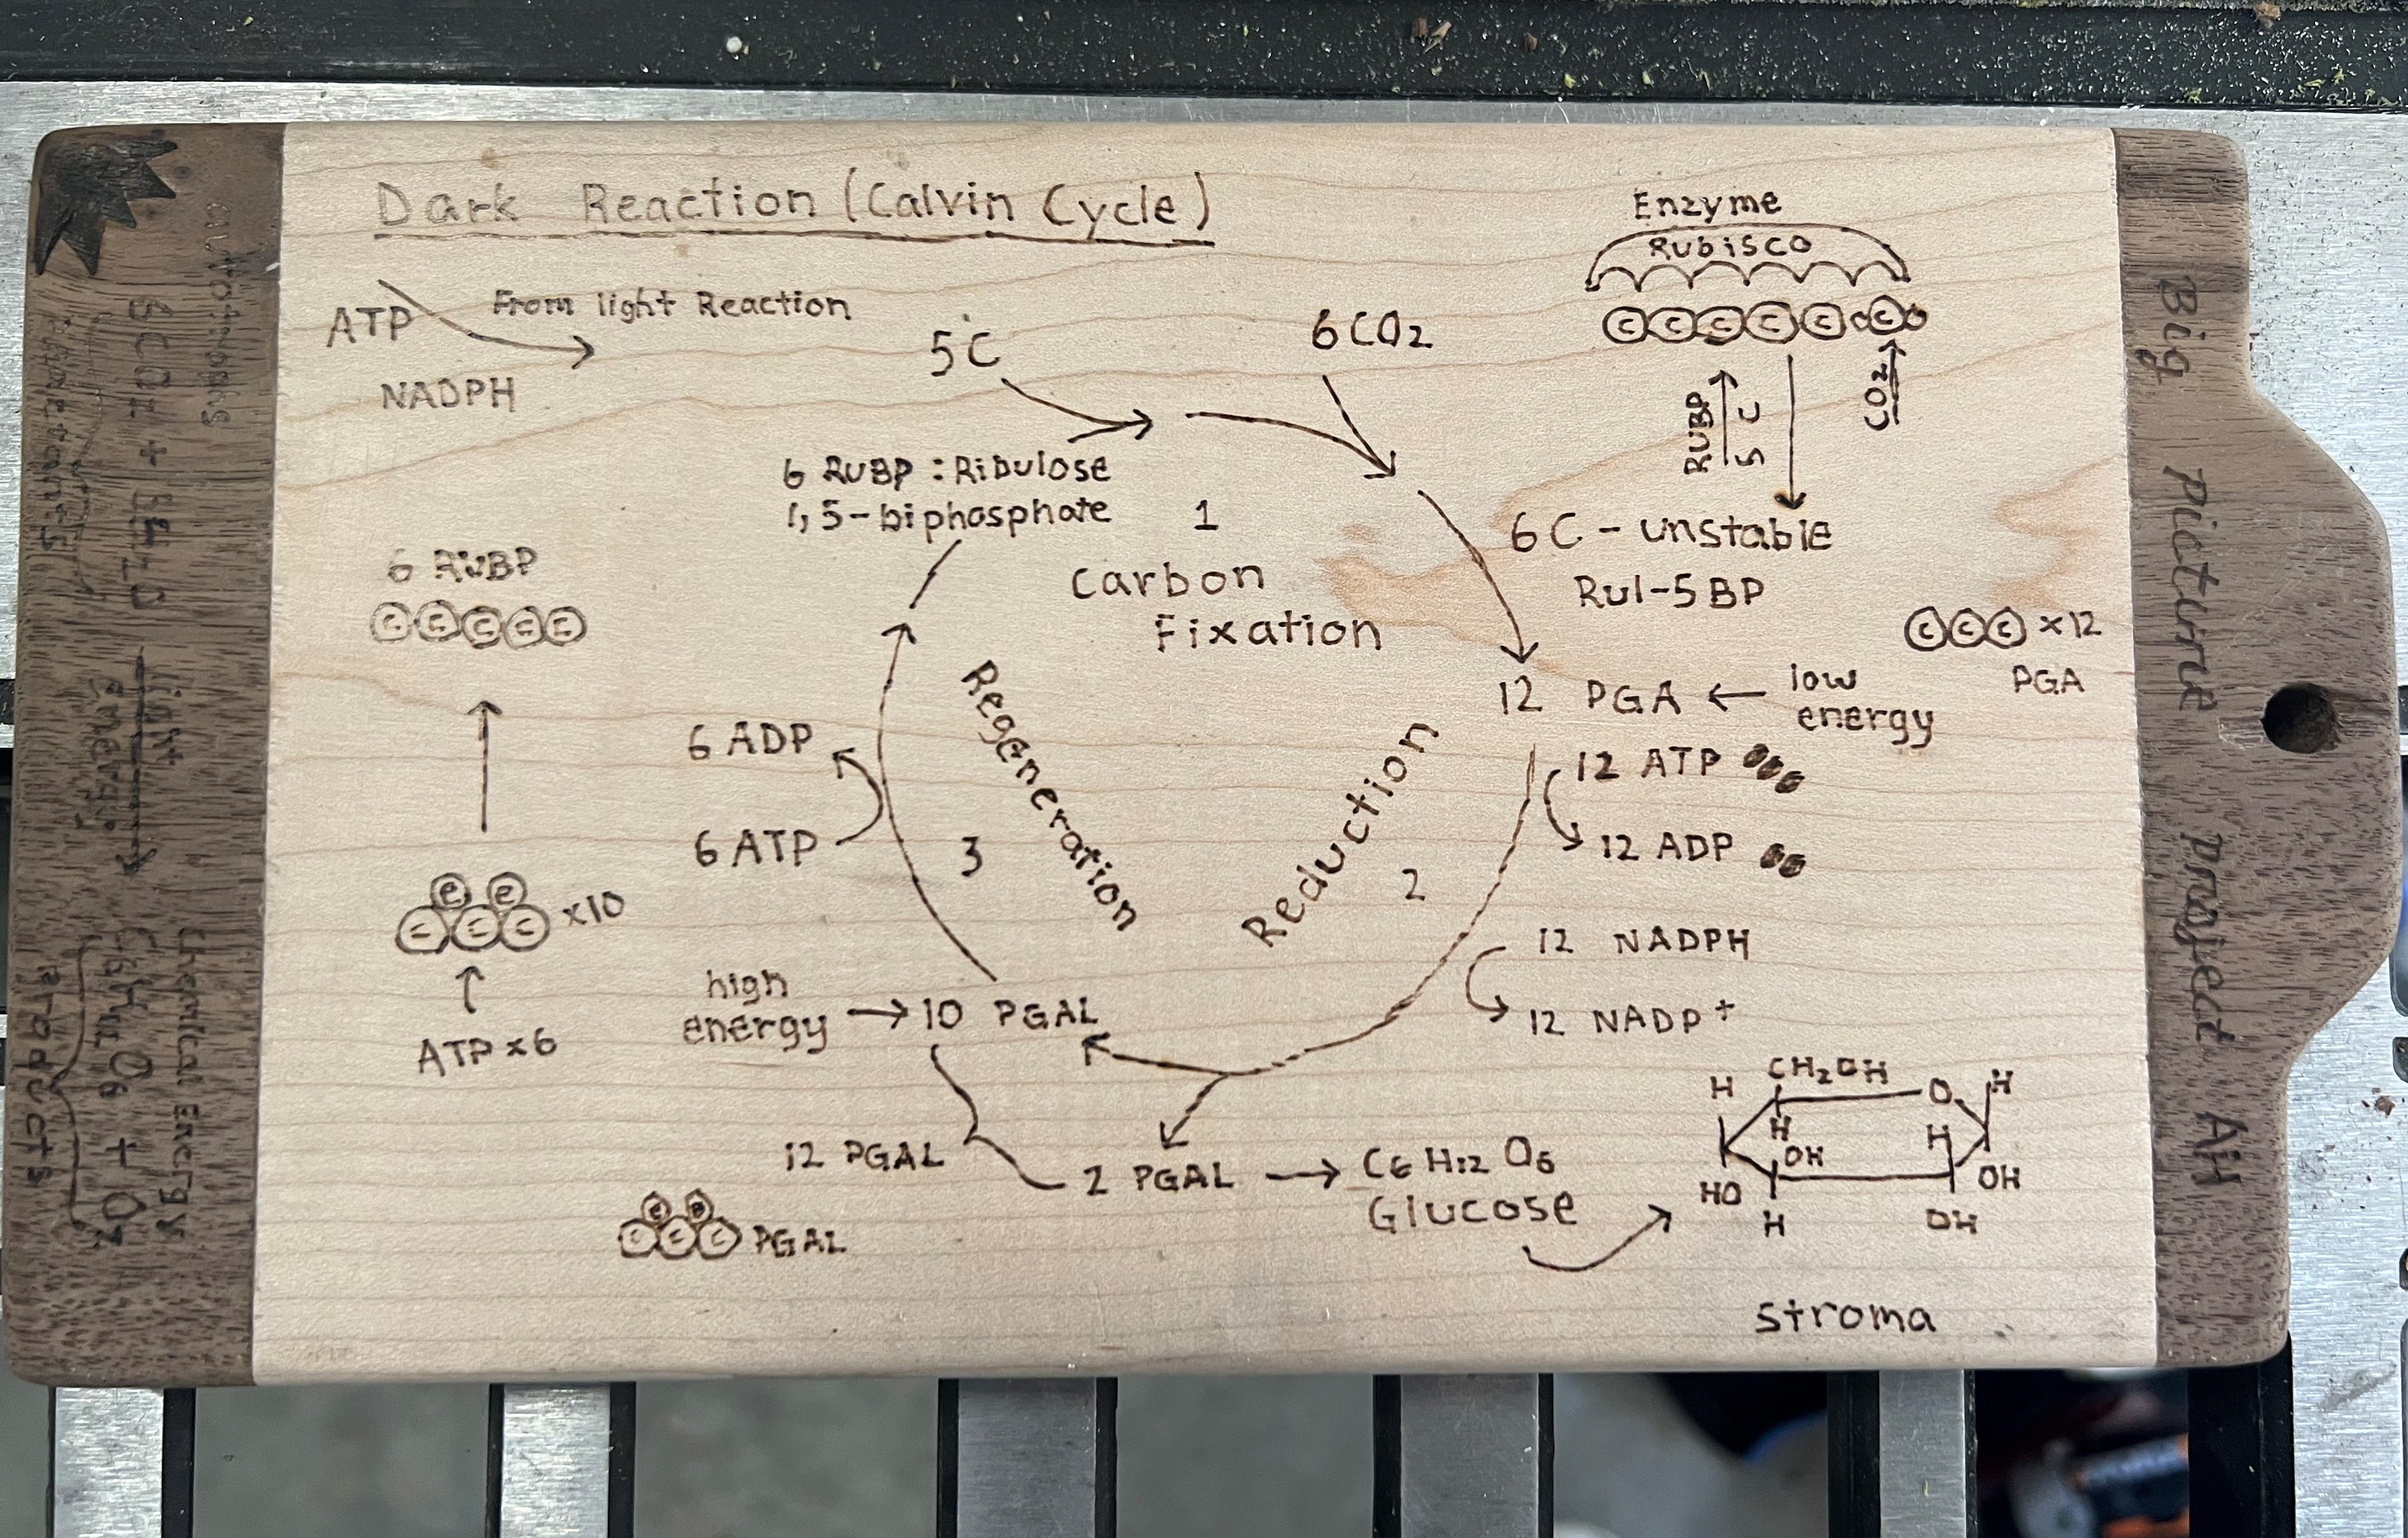 Dark Reaction (Calvin Cycle)
ATP
NADPH
From light Reaction
5C
6CO2
6 RuBP : Ribulose
1, 5-biphosphate
1
Carbon
Fixation
Enzyme
Rubisco
C C C C C O C O
RUBP
5 C
CO2
6C - unstable
Rul-5BP
C C C x12
PGA
12 PGA ← low
energy
12 ATP
12 ADP
Reduction
2
12 NADPH
12 NADP+
6 RuBP
C C C C C
e e
C C C x10
ATP x6
6 ADP
6 ATP
3
Regeneration
high
energy → 10 PGAL
12 PGAL
2 PGAL → C6 H12 O6
Glucose
e e
C C C PGAL
H CH2OH O H
H
OH H
HO OH
H OH
stroma
Big Picture Project AH
autotrophs
light
energy
Chemical Energy
C6H12O6 + O2
Products